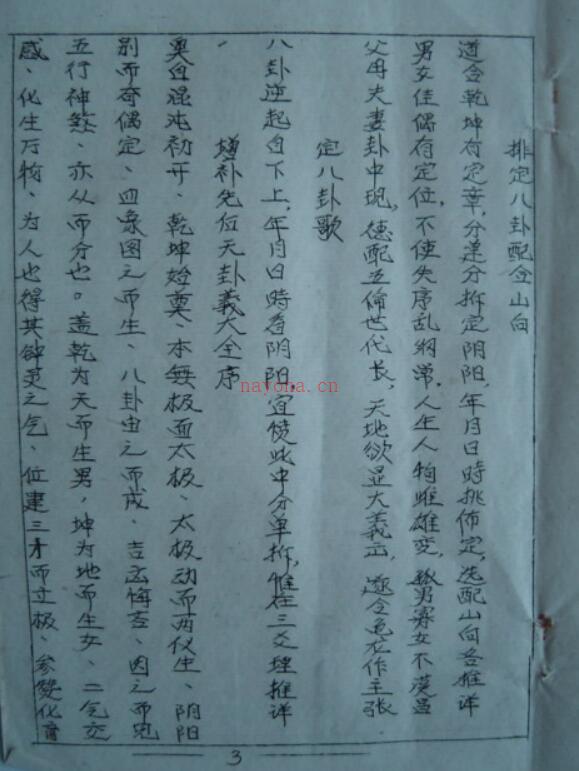 排定八卦配合山向
道合乾坤有定章,分差分拆定阴阳,年月日時挑佈定,选配山向各推详
男女佳偶有定位,不使失序乱纲常,人生人物雌雄变,孤男寡女不
父母夫妻卦中现,德配五倫世代长,天地欲显大義正,遂令危在作主张
定八卦歌
八卦逆起自下上,年月日時看阴阳,宜凭此中分单拆,惟在三爻理推详
增补先后天卦義大全序
奥自混沌初开、乾坤始奠、本無极而太极、太极动而两仪生、阴阳
别而奇偶定、四象因之而生、八卦由之而成、吉凶悔吝、因之而
五行神煞、亦从而分也。盖乾为天而生男,坤为地而生女、二气交
感、化生万物、为人也得其钟灵之气、位建三才而立极、参赞化育
3
nayona.cn